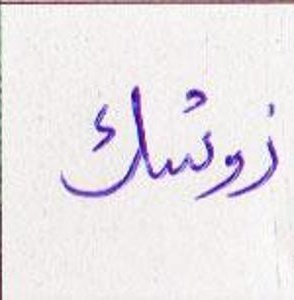 زوشك